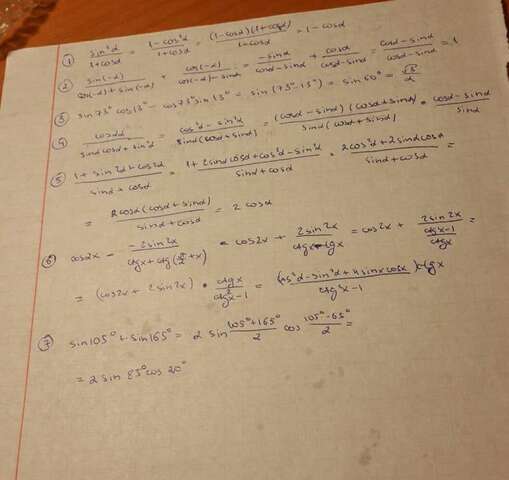 ① sin²α/(1+cosα) = (1-cos²α)/(1+cosα) = (1-cosα)(1+cosα)/(1+cosα) = 1-cosα
② sin(-α)/(cos(-α)+sin(-α)) + cos(-α)/(cos(-α)-sinα) = -sinα/(cosα-sinα) + cosα/(cosα-sinα) = (cosα-sinα)/(cosα-sinα) = 1
③ sin 73° cos 13° - cos 73° sin 13° = sin(73°-13°) = sin 60° = √3/2
④ cos2α/(sinα cosα + sin²α) = (cos²α - sin²α)/(sinα(cosα+sinα)) = (cosα-sinα)(cosα+sinα)/(sinα(cosα+sinα)) = (cosα-sinα)/sinα
⑤ (1+sin2α+cos2α)/(sinα+cosα) = (1+2sinα cosα+cos²α-sin²α)/(sinα+cosα) = (2cos²α+2sinα cosα)/(sinα+cosα) =
= 2cosα(cosα+sinα)/(sinα+cosα) = 2 cosα
⑥ cos2x - (-2sin2x)/(ctgx+ctg(π/2+x)) = cos2x + 2sin2x/(ctgx-tgx) = cos2x + 2sin2x/((ctg²x-1)/ctgx) =
= (cos2x + 2sin2x) · ctgx/(ctg²x-1) = (cos²α-sin²α+4sinx cosx)ctgx/(ctg²x-1)
⑦ sin105° + sin165° = 2 sin (105°+165°)/2 cos (105°-65°)/2 =
= 2 sin 85° cos 20°